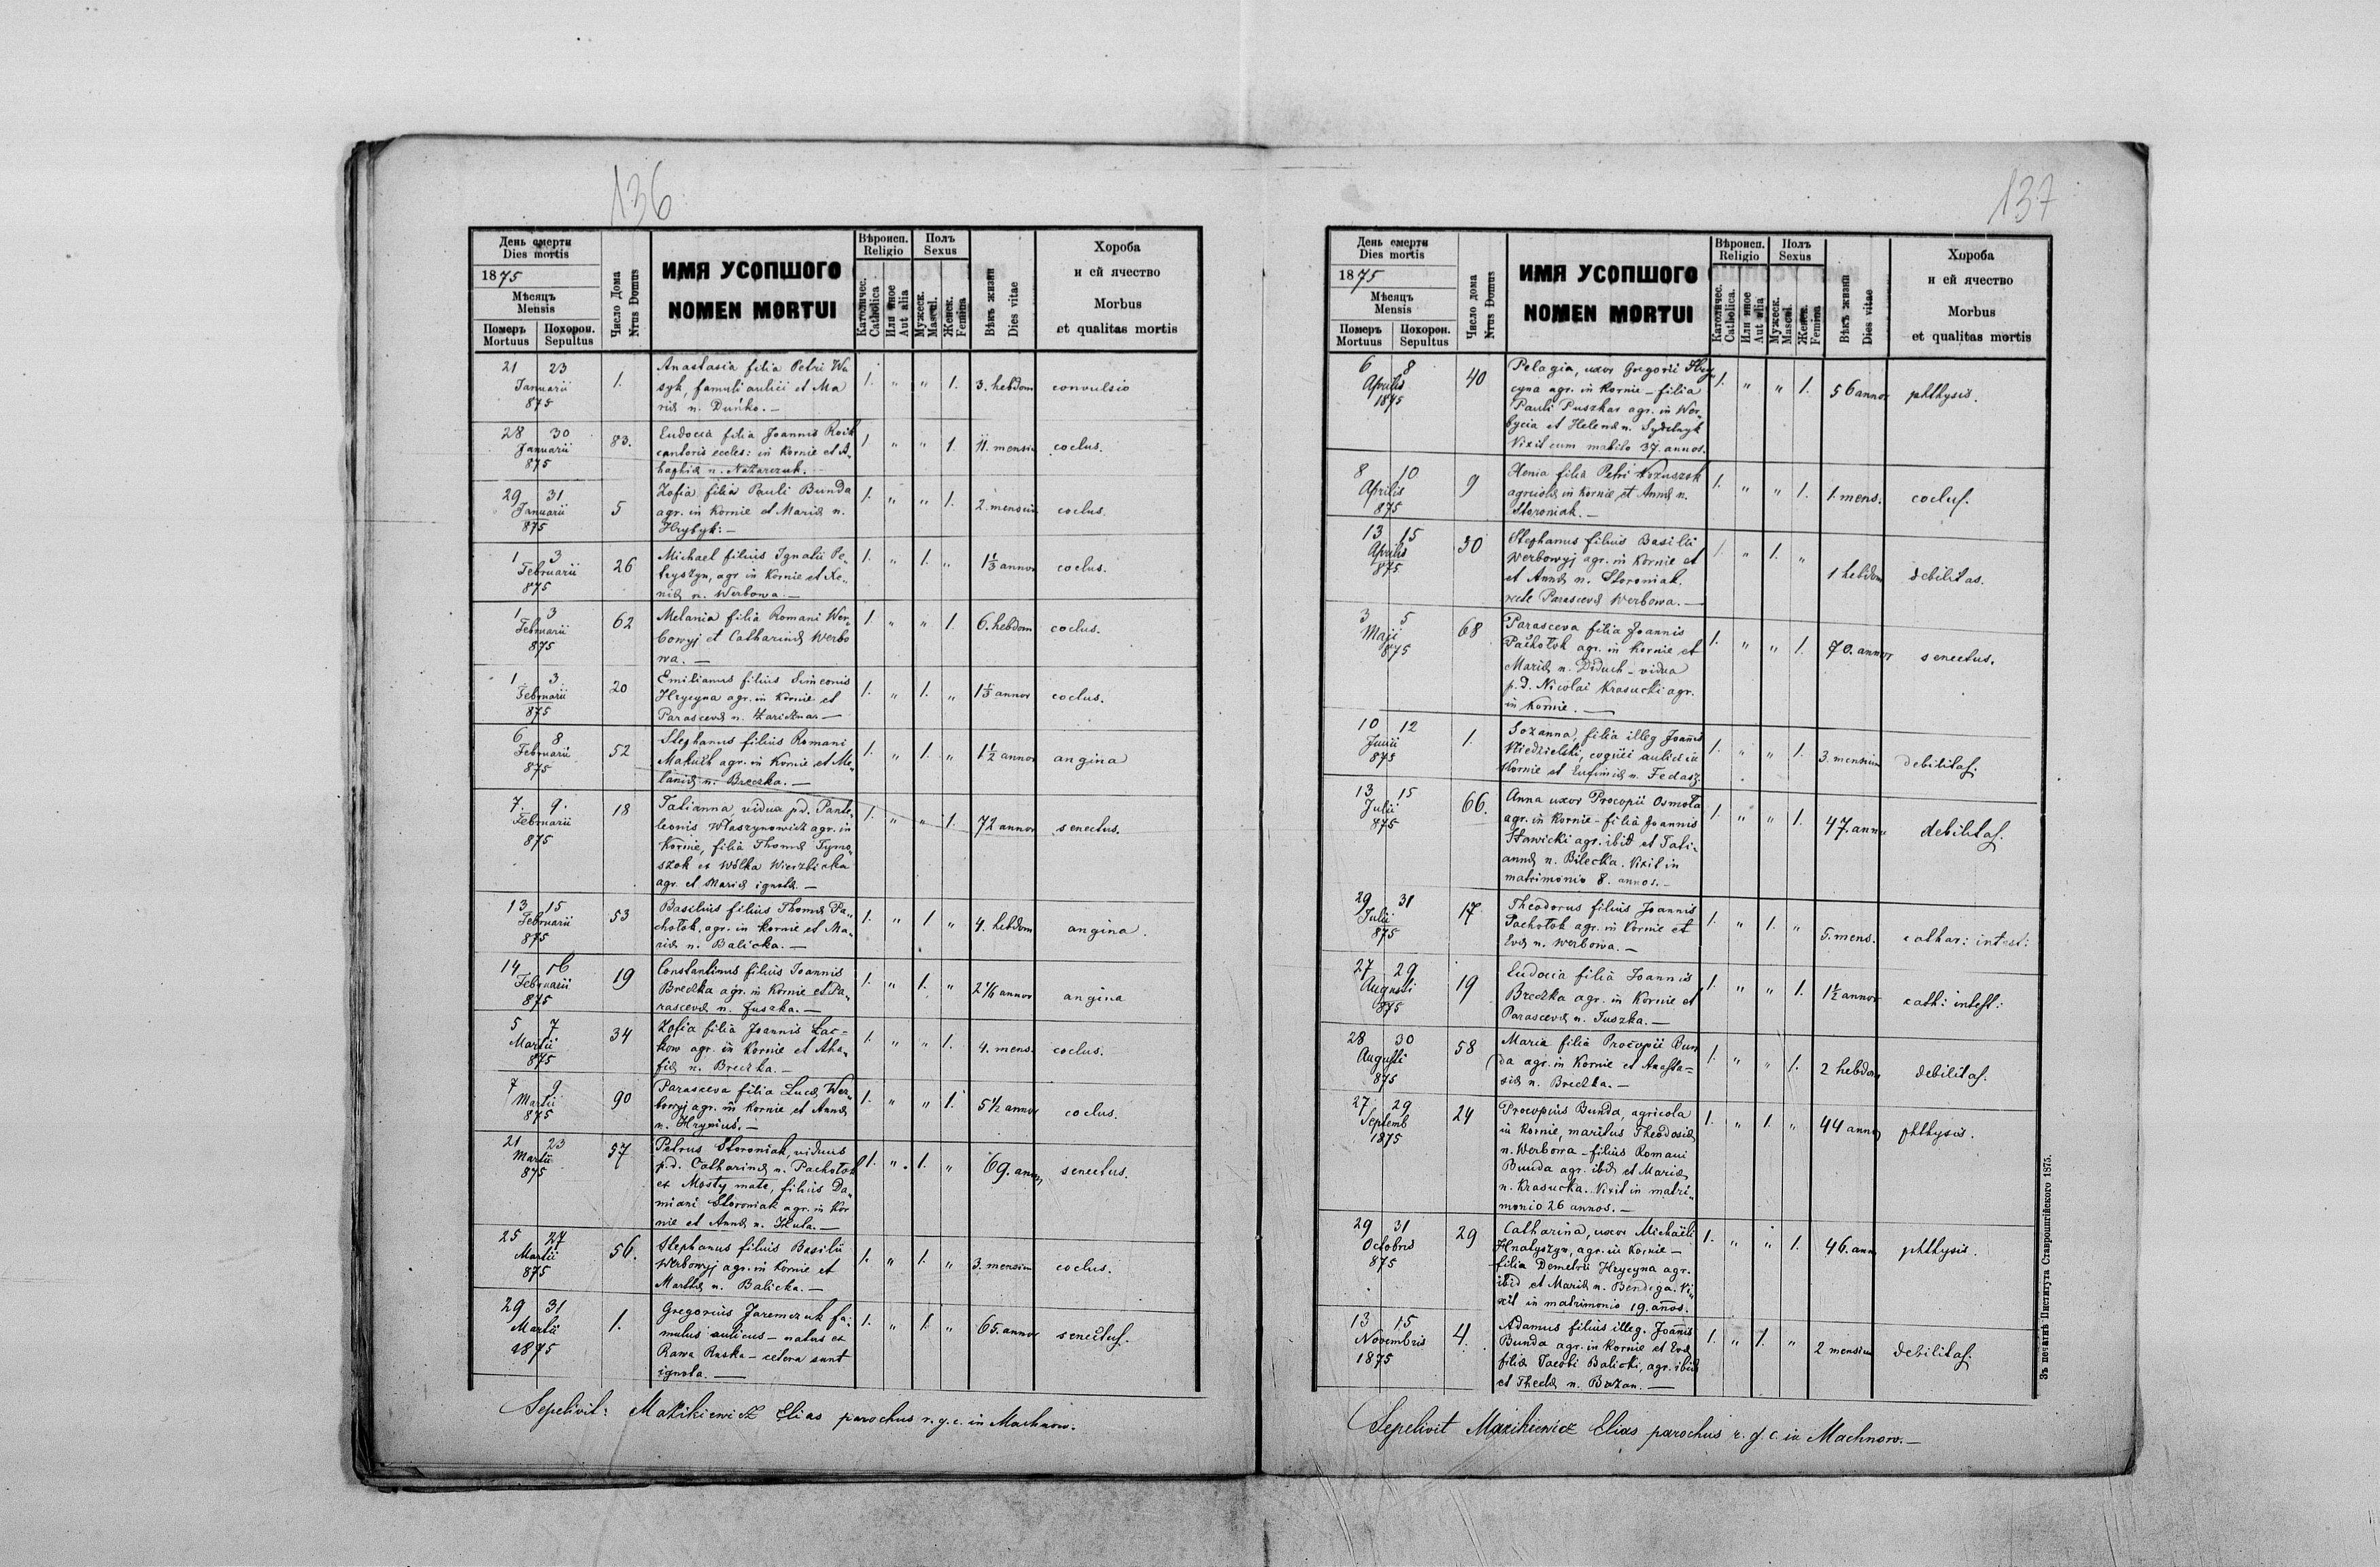 136
День смерти
Dies mortis
1875
Мѣсяцъ
Mensis
Померъ
Mortuus
Похорон.
Sepultus
Число Дома
Nrus Domus
ИМЯ УСОПШОГО
NOMEN MORTUI
Вѣроисп.
Religio
Католичес.
Catholica
Или иное
Aut alia
Полъ
Sexus
Мужеск.
Mascul.
Женск.
Femina
Вѣкъ жизни
Dies vitae
Хороба
и ей ячество
Morbus
et qualitas mortis
21 23
Januarii
875
1.
Anastasia filia Petri Wa
syk, famuli aulici et Ma
riæ n. Duńko. —
1. " " 1. 3. hebdom convulsio
28 30
Januarii
875
83.
Eudocia filia Joannis Roik
cantoris eccles: in Kornie et A-
haphiæ n. Nazarczuk.
1. " " 1. 11. mensiu coclus.
29 31
Januarii
875
5
Zofia filia Pauli Bunda
agr. in Kornie et Mariæ n.
Hrybyk: —
1. " " 1. 2. mensiu coclus.
1 3
Februarii
875
26
Michael filius Ignatii Pe-
tryszyn, agr in Kornie et Xe-
niæ n. Werbowa. —
1. " 1. " 1⅓ annor coclus.
1 3
Februarii
875
62
Melania filia Romani Wer-
bowyj et Catharinæ Werbo
wa. —
1. " " 1. 6. hebdom coclus.
1 3
Februarii
875
20
Emilianus filius Simeonis
Hrycyna agr. in Kornie et
Parascevæ n. Zaricznar —
1. " 1. " 1⅓ annor coclus.
6 8
Februarii
875
52
Stephanus filius Romani
Makuch agr. in Kornie et Me-
laniæ n. Breczka. —
1. " 1. " 1½ annor angina
7. 9.
Februarii
875
18
Tatianna vidua pd. Pante-
leonis Właszynowicz agr. in
Kornie, filia Thomæ Tymo-
szok ex Wólka Wierzbicka
agr. et Mariæ ignotæ. —
1. " " 1. 72 annor senectus.
13 15
Februarii
875
53
Basilius filius Thomæ Pa-
chołok, agr. in Kornie et Ma-
riæ n. Balicka. —
1. " 1 " 4. hebdom angina.
14 16
Februarii
875
19
Constantinus filius Joannis
Breczka agr. in Kornie et Pa-
rascevæ n. Juszka. —
1. " 1. " 2 1/6 annor angina
5 7
Martii
875
34
Zofia filia Joannis Łac-
kow agr. in Kornie et Aha-
fiæ n. Breczka. —
1. " " 1. 4. mens. coclus.
7 9
Martii
875
90
Parasceva filia Lucæ Wer-
bowyj agr. in Kornie et Annæ
n. Hryniuś. —
1. " " 1. 5½ annor coclus.
21 23
Martii
875
57
Petrus Storoniak, viduus
p.d. Catharinæ n. Pachołok
ex Mosty małe, filius Da-
miani Storoniak agr. in Kor
nie et Annæ n. Huła. —
1. " 1. " 69. annor senectus.
25 27
Martii
875
56.
Stephanus filius Basilii
Werbowyj agr. in Kornie et
Marthæ n. Balicka. —
1. " 1. " 3. mensium coclus.
29 31
Martii
1875
1.
Gregorius Jaremczuk fa-
mulus aulicus — natus ex
Rawa Ruska — cetera sunt
ignota. —
1. " 1. " 65. annor senectus.
Sepelivit: Mazikiewicz Elias parochus r. g. c. in Machnow.
137
День смерти
Dies mortis
1875
Мѣсяцъ
Mensis
Померъ
Mortuus
Похорон.
Sepultus
Число дома
Nrus Domus
ИМЯ УСОПШОГО
NOMEN MORTUI
Вѣроисп.
Religio
Католичес.
Catholica.
Или иное
Aut alia
Полъ
Sexus
Мужеск.
Mascul.
Женск.
Femina
Вѣкъ жизни
Dies vitae
Хороба
и ей ячество
Morbus
et qualitas mortis
6 8
Aprilis
1875
40
Pelagia, uxor Gregorii Hry-
cyna agr. in Kornie — filia
Pauli Puszkar agr. in Wer-
bycia et Helenæ n. Sydelnyk
Vixit cum marito 37. annos.
1. " " 1. 56 annor phthysis.
8 10
Aprilis
875
9
Xenia filia Petri Kozuszok
agricolæ in Kornie et Annæ n.
Storoniak. —
1. " " 1. 1. mens. coclus.
13 15
Aprilis
875
30
Stephanus filius Basilii
Werbowyj agr. in Kornie et
et Annæ n. Storoniak.
recte Parascevæ Werbowa. —
1. " 1. " 1 hebdom debilitas.
3 5
Maji
875
68
Parasceva filia Joannis
Pachołok agr. in Kornie et
Mariæ n. Diduch — vidua
p.d. Nicolai Krasucki agr.
in Kornie. —
1. " " 1. 70. annor senectus.
10 12
Junii
875
1.
Zozanna, filia illeg Joannis
Niedzielski, coquei aulici in
Kornie et Eufimiæ n. Fedasz
1. " " 1. 3. mensium debilitas.
13 15
Julii
875
66.
Anna uxor Procopii Osmoła
agr. in Kornie — filia Joannis
Stawicki agr. ibid et Tati-
annæ n. Bilecka. Vixit in
matrimonio 8. annos. —
1. " " 1. 47. annor debilitas.
29 31
Julii
875
17
Theodorus filius Joannis
Pachołok agr. in Kornie et
Evæ n. Werbowa. —
1. " 1. " 5. mens. cathar: intest:
27 29
Augusti
875
19
Eudocia filia Joannis
Breczka agr. in Kornie et
Parascevæ n. Juszka. —
1. " " 1. 1½ annor cath: intest:
28 30
Augusti
875
58
Maria filia Procopii Bun
da agr. in Kornie et Anasta-
siæ n. Breczka. —
1. " " 1. 2 hebdom debilitas.
27 29
Septemb
1875
24
Procopius Bunda, agricola
in Kornie, maritus Theodosiæ
n. Werbowa — filius Romani
Bunda agr. ibid et Mariæ
n. Krasucka. Vixit in matri-
monio 26 annos. —
1. " 1. " 44 annor phthysis.
29 31
Octobris
875
29
Catharina, uxor Michaeli
Hnatyszyn, agr. in Kornie —
filia Demetrii Hrycyna agr.
ibid et Mariæ n. Bendega. Vi-
xit in matrimonio 19. annos.
1. " " 1. 46. ann phthysis.
13 15
Novembris
1875
4.
Adamus filius illeg. Joannis
Bunda agr. in Kornie et Evæ
filiæ Jacobi Balicki, agr. ibid
et Theclæ n. Bazan. —
1. " 1. " 2 mensium debilitas.
Sepelivit Mazikiewicz Elias parochus r. g. c. in Machnow. —
Зъ печатнѣ Института Ставропигійского 1875.